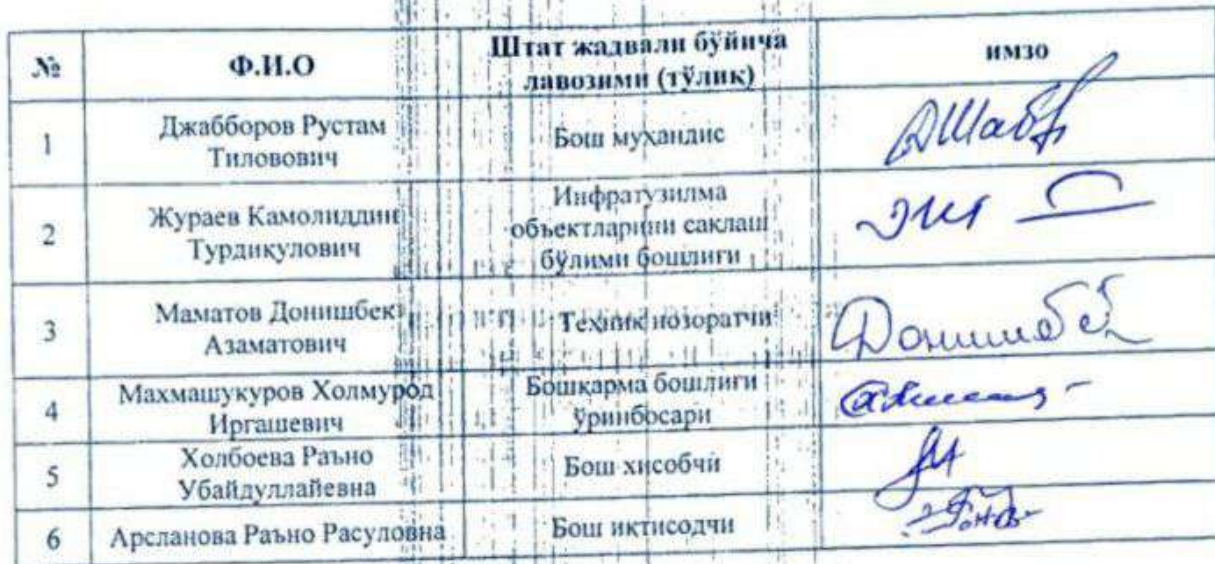 № Ф.И.О Штат жадвали бўйича лавозими (тўлиқ) имзо
1 Джабборов Рустам Тиловович Бош мухандис
2 Жураев Камолиддин Турдиқулович Инфратузилма объектларини сақлаш бўлими бошлиғи
3 Маматов Донишбек Азаматович Техник нозоратчи Донишбек
4 Махмашукуров Холмурод Иргашевич Бошқарма бошлиғи ўринбосари
5 Холбоева Раъно Убайдуллайевна Бош хисобчи
6 Арсланова Раъно Расуловна Бош иқтисодчи